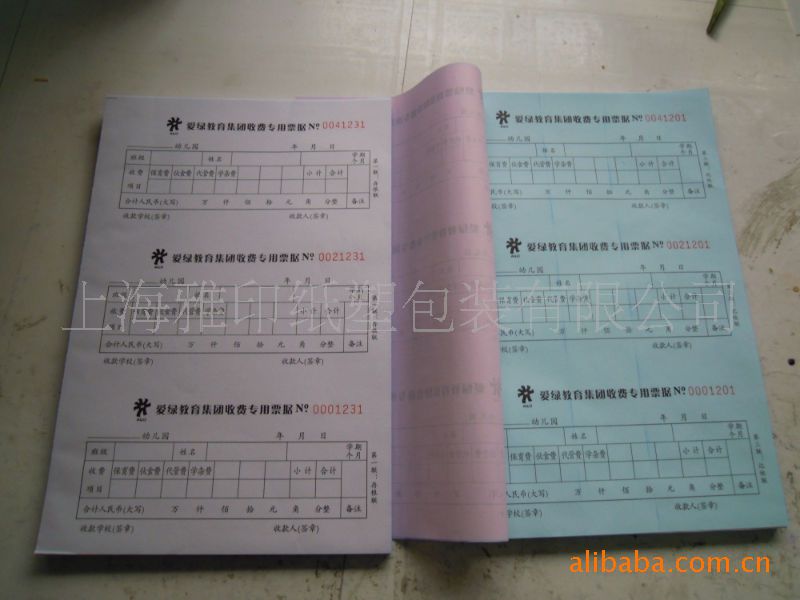 爱绿教育集团收费专用票据 Nº 0041231
幼儿园 年 月 日
班级 姓名 学期 个月
收费项目 保育费 伙食费 代管费 学杂费 小计 合计
合计人民币(大写) 万 仟 佰 拾 元 角 分整 备注
收款学校(签章) 收款人(签章)
第一联:存根联
爱绿教育集团收费专用票据 Nº 0021231
幼儿园 年 月 日
班级 姓名 学期 个月
收费项目 保育费 伙食费 代管费 学杂费 小计 合计
合计人民币(大写) 万 仟 佰 拾 元 角 分整 备注
收款学校(签章) 收款人(签章)
第一联:存根联
爱绿教育集团收费专用票据 Nº 0001231
幼儿园 年 月 日
班级 姓名 学期 个月
收费项目 保育费 伙食费 代管费 学杂费 小计 合计
合计人民币(大写) 万 仟 佰 拾 元 角 分整 备注
收款学校(签章) 收款人(签章)
第一联:存根联
爱绿教育集团收费专用票据 Nº 0041201
幼儿园 年 月 日
姓名 学期 个月
保育费 伙食费 代管费 学杂费 小计 合计
合计人民币(大写) 万 仟 佰 拾 元 角 分整 备注
收款学校(签章) 收款人(签章)
爱绿教育集团收费专用票据 Nº 0021201
幼儿园 年 月 日
姓名 学期 个月
保育费 伙食费 代管费 学杂费 小计 合计
人民币(大写) 万 仟 佰 拾 元 角 分整 备注
学校(签章) 收款人(签章)
爱绿教育集团收费专用票据 Nº 0001201
幼儿园 年 月 日
姓名 学期 个月
保育费 伙食费 代管费 学杂费 小计 合计
人民币(大写) 万 仟 佰 拾 元 角 分整 备注
学校(签章) 收款人(签章)
上海雅印纸塑包装有限公司
alibaba.com.cn